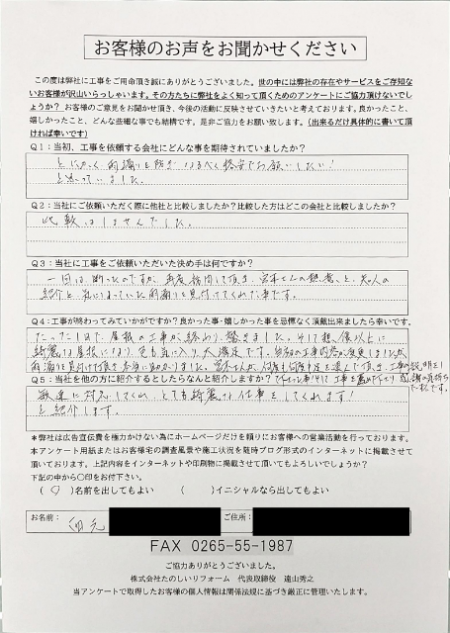 お客様のお声をお聞かせください
この度は弊社に工事をご用命頂き誠にありがとうございました。世の中には弊社の存在やサービスをご存知
ないお客様が沢山いらっしゃいます。その方たちに弊社をよく知って頂くためのアンケートにご協力頂けないでし
ょうか？お客様のご意見をお聞かせ頂き、今後の活動に反映させていきたいと考えております。良かったこと、
嬉しかったこと、どんな些細な事でも結構です。是非ご協力をお願い致します。（出来るだけ具体的に書いて頂
ければ幸いです）
Q1：当初、工事を依頼する会社にどんな事を期待されていましたか？
とにかく雨漏りを防ぎ、なるべく格安でお願いしたい！
と思っていました。
Q2：当社にご依頼いただく際に他社と比較しましたか？比較した方はどこの会社と比較しましたか？
比較はしませんでした。
Q3：当社に工事をご依頼いただいた決め手は何ですか？
一回は断ったのですが、再度訪問して頂き、宮本さんの熱意と、知人の
紹介と、気になっていた雨漏りを見付けてくれた事です。
Q4：工事が終わってみていかがですか？良かった事・嬉しかった事を忌憚なく頂戴出来ましたら幸いです。
たった1日で、屋根の工事が終わり、驚きました。そして想像以上に
綺麗な屋根になり、色も気に入り、大満足です。
雨漏りを見付けて頂き本当に助かりました。
Q5：当社を他の方に紹介するとしたらなんと紹介しますか？
敏速に対応してくれ、とても綺麗な仕事をしてくれます！
と紹介します。
＊弊社は広告宣伝費を極力かけない為にホームページだけを頼りにお客様への営業活動を行っております。
本アンケート用紙またはお客様宅の調査風景や施工状況を随時ブログ形式のインターネットに掲載させて
頂いております。上記内容をインターネットや印刷物に掲載させて頂いてもよろしいでしょうか？
下記の中から〇印をお付け下さい。
（〇）名前を出してもよい （ ）イニシャルなら出してもよい
お名前： ご住所：
FAX 0265-55-1987
ご協力ありがとうございました。
株式会社たのしいリフォーム 代表取締役 遠山秀之
当アンケートで取得したお客様の個人情報は関係法規に基づき厳正に管理いたします。